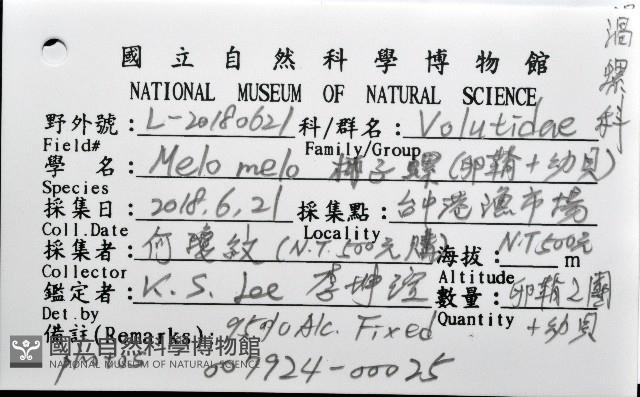 渦螺科
國立自然科學博物館
NATIONAL MUSEUM OF NATURAL SCIENCE
野外號: L-20180621 科/群名: Volutidae
Field# Family/Group
學 名: Melo melo 椰子螺(卵鞘+幼貝)
Species
採集日: 2018.6.21 採集點: 台中港漁市場
Coll.Date Locality
採集者: 何瓊紋 (N.T.500元購) 海拔: N.T500元 m
Collector Altitude
鑑定者: K. S. Lee 李坤瑄 數量: 卵鞘2團
Det.by Quantity +幼貝
備註(Remarks): 95% Alc. Fixed
國立自然科學博物館
NATIONAL MUSEUM OF NATURAL SCIENCE
007924-00025